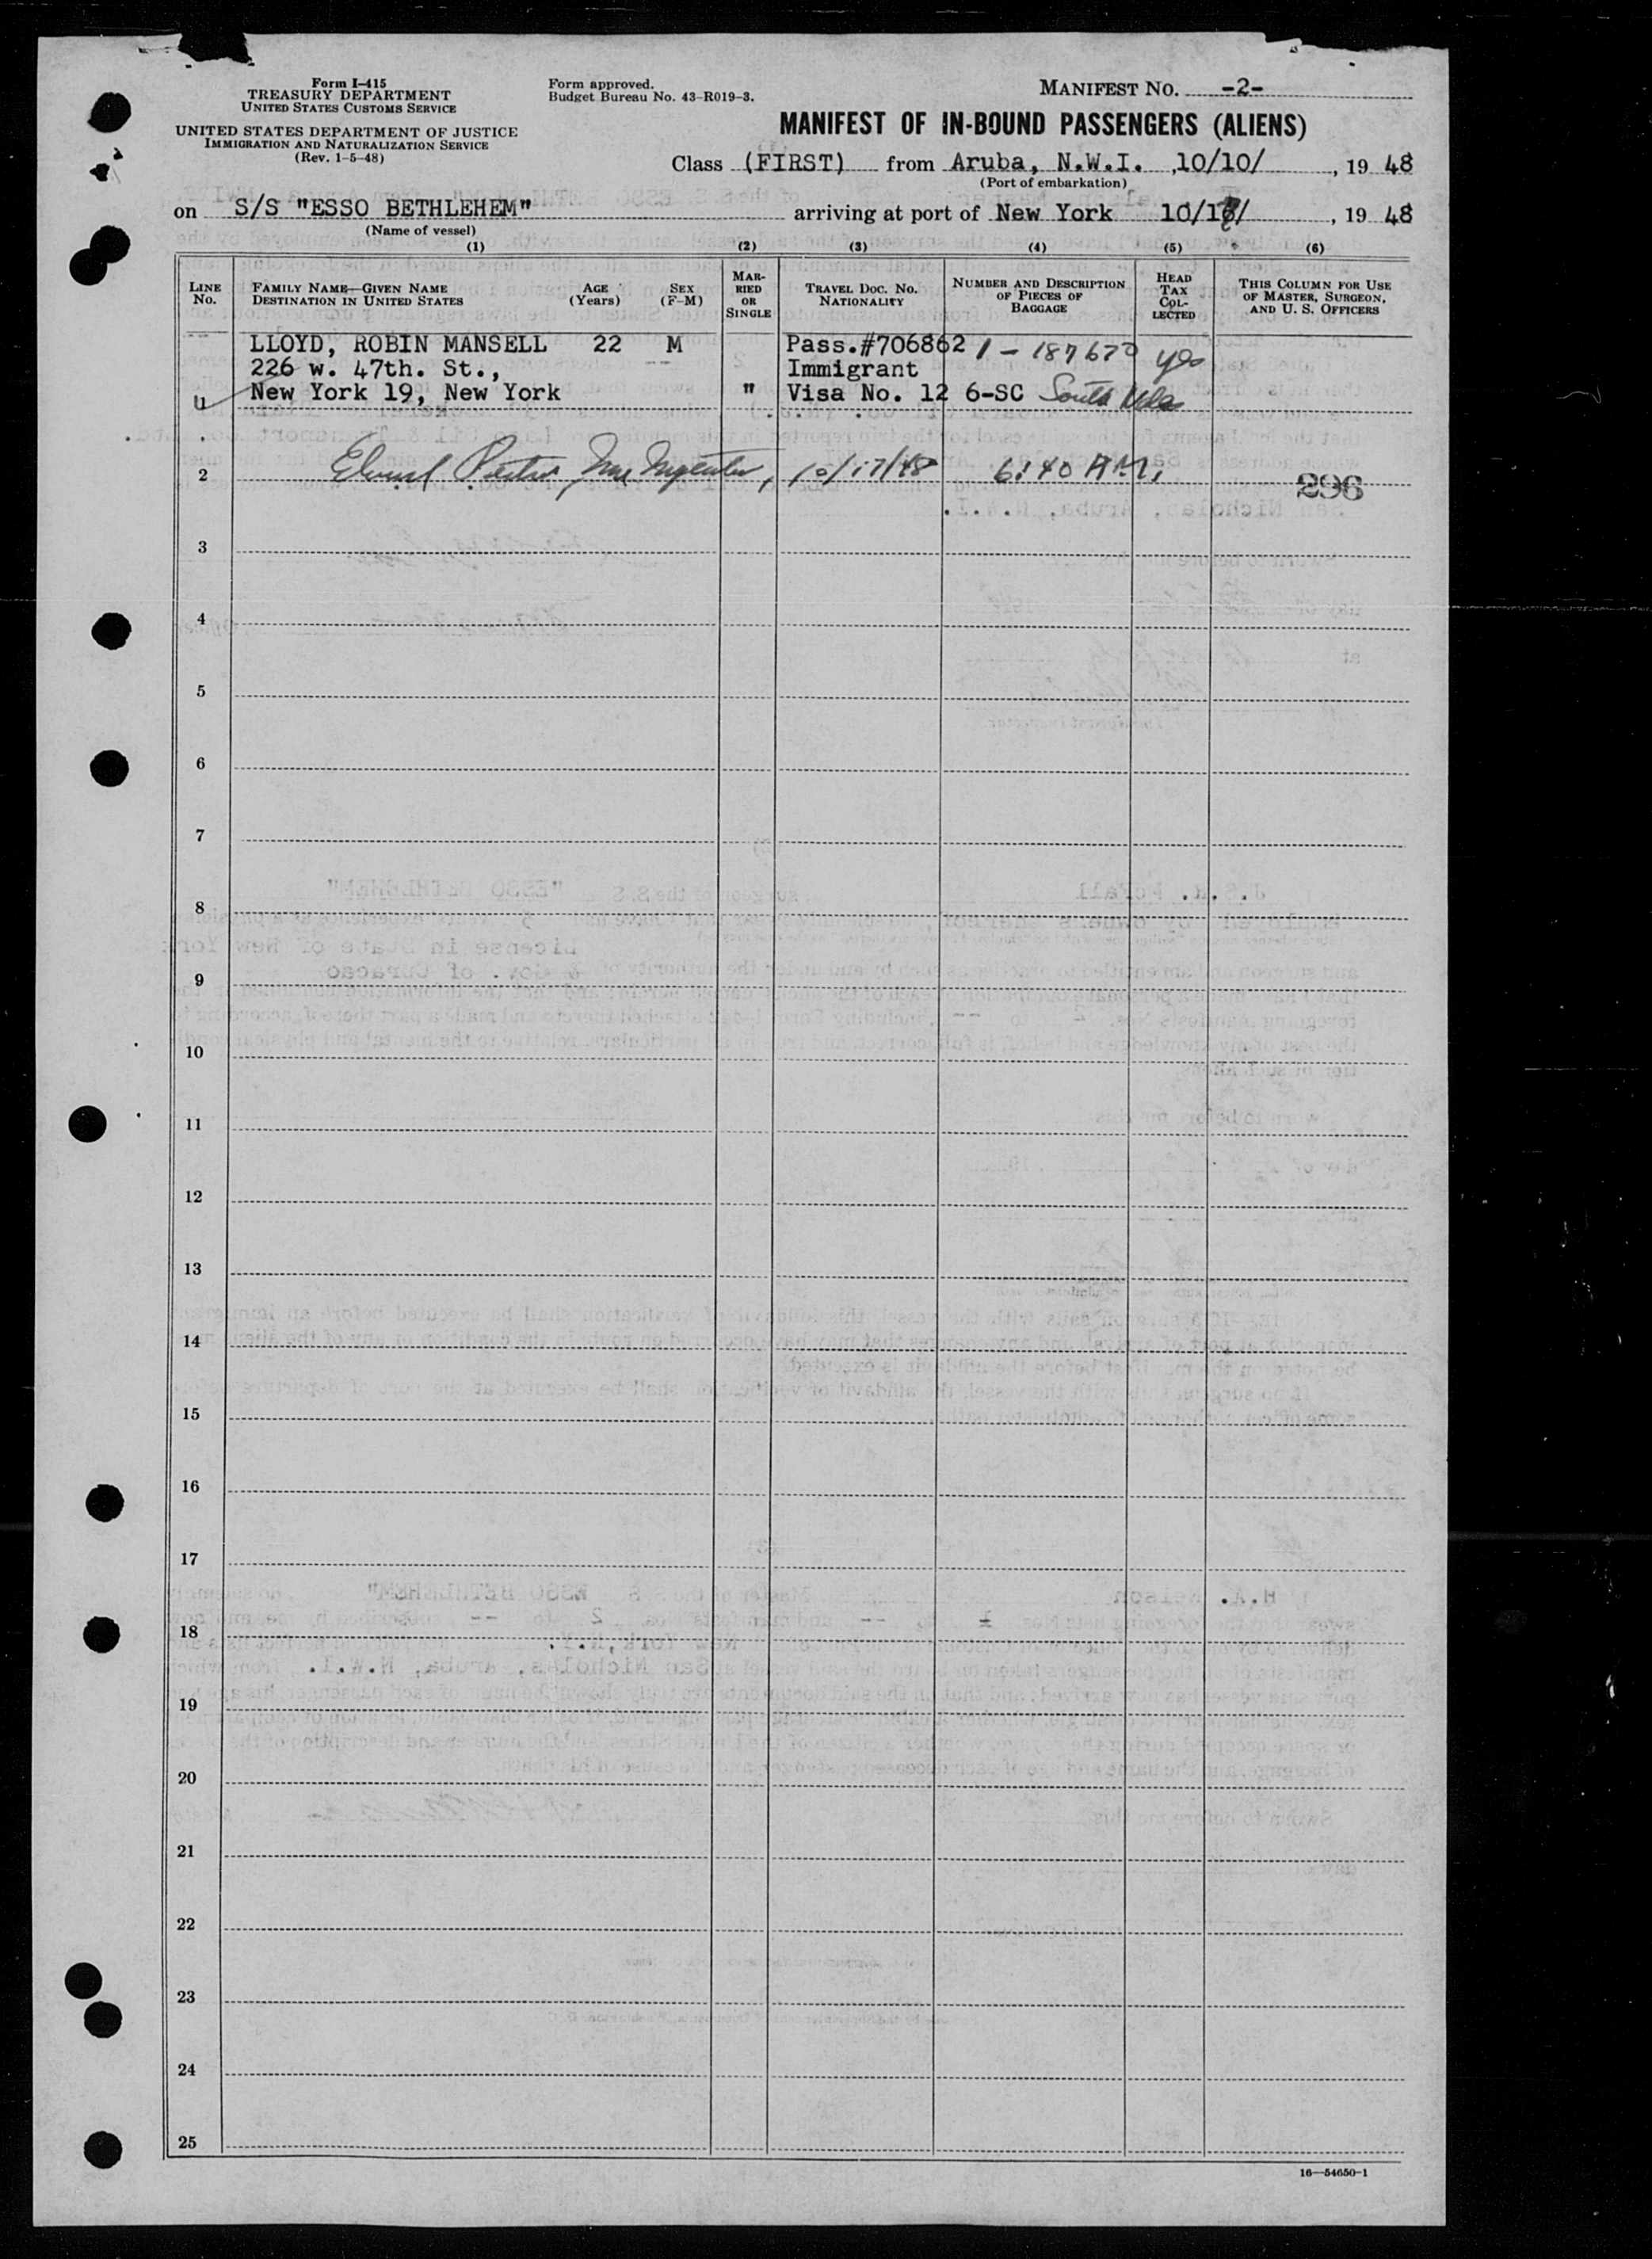 Form I-415
TREASURY DEPARTMENT
UNITED STATES CUSTOMS SERVICE
UNITED STATES DEPARTMENT OF JUSTICE
IMMIGRATION AND NATURALIZATION SERVICE
(Rev. 1-5-48)
Form approved.
Budget Bureau No. 43-R019-3.
MANIFEST NO. -2-
MANIFEST OF IN-BOUND PASSENGERS (ALIENS)
Class (FIRST) from Aruba, N.W.I. ,10/10/ , 19 48
(Port of embarkation)
on S/S "ESSO BETHLEHEM" arriving at port of New York 10/17/ , 19 48
(Name of vessel)
(1) (2) (3) (4) (5) (6)
LINE No. FAMILY NAME—GIVEN NAME DESTINATION IN UNITED STATES AGE (Years) SEX (F-M) MARRIED OR SINGLE TRAVEL DOC. NO. NATIONALITY NUMBER AND DESCRIPTION OF PIECES OF BAGGAGE HEAD TAX COLLECTED THIS COLUMN FOR USE OF MASTER, SURGEON, AND U. S. OFFICERS
LLOYD, ROBIN MANSELL 22 M Pass.#706862 1 - 187670 yes
226 w. 47th. St., -- Immigrant
New York 19, New York " Visa No. 12 6-SC South
2 10/17/48 6:40 AM, 296
3
4
5
6
7
8
9
10
11
12
13
14
15
16
17
18
19
20
21
22
23
24
25
16—54650-1